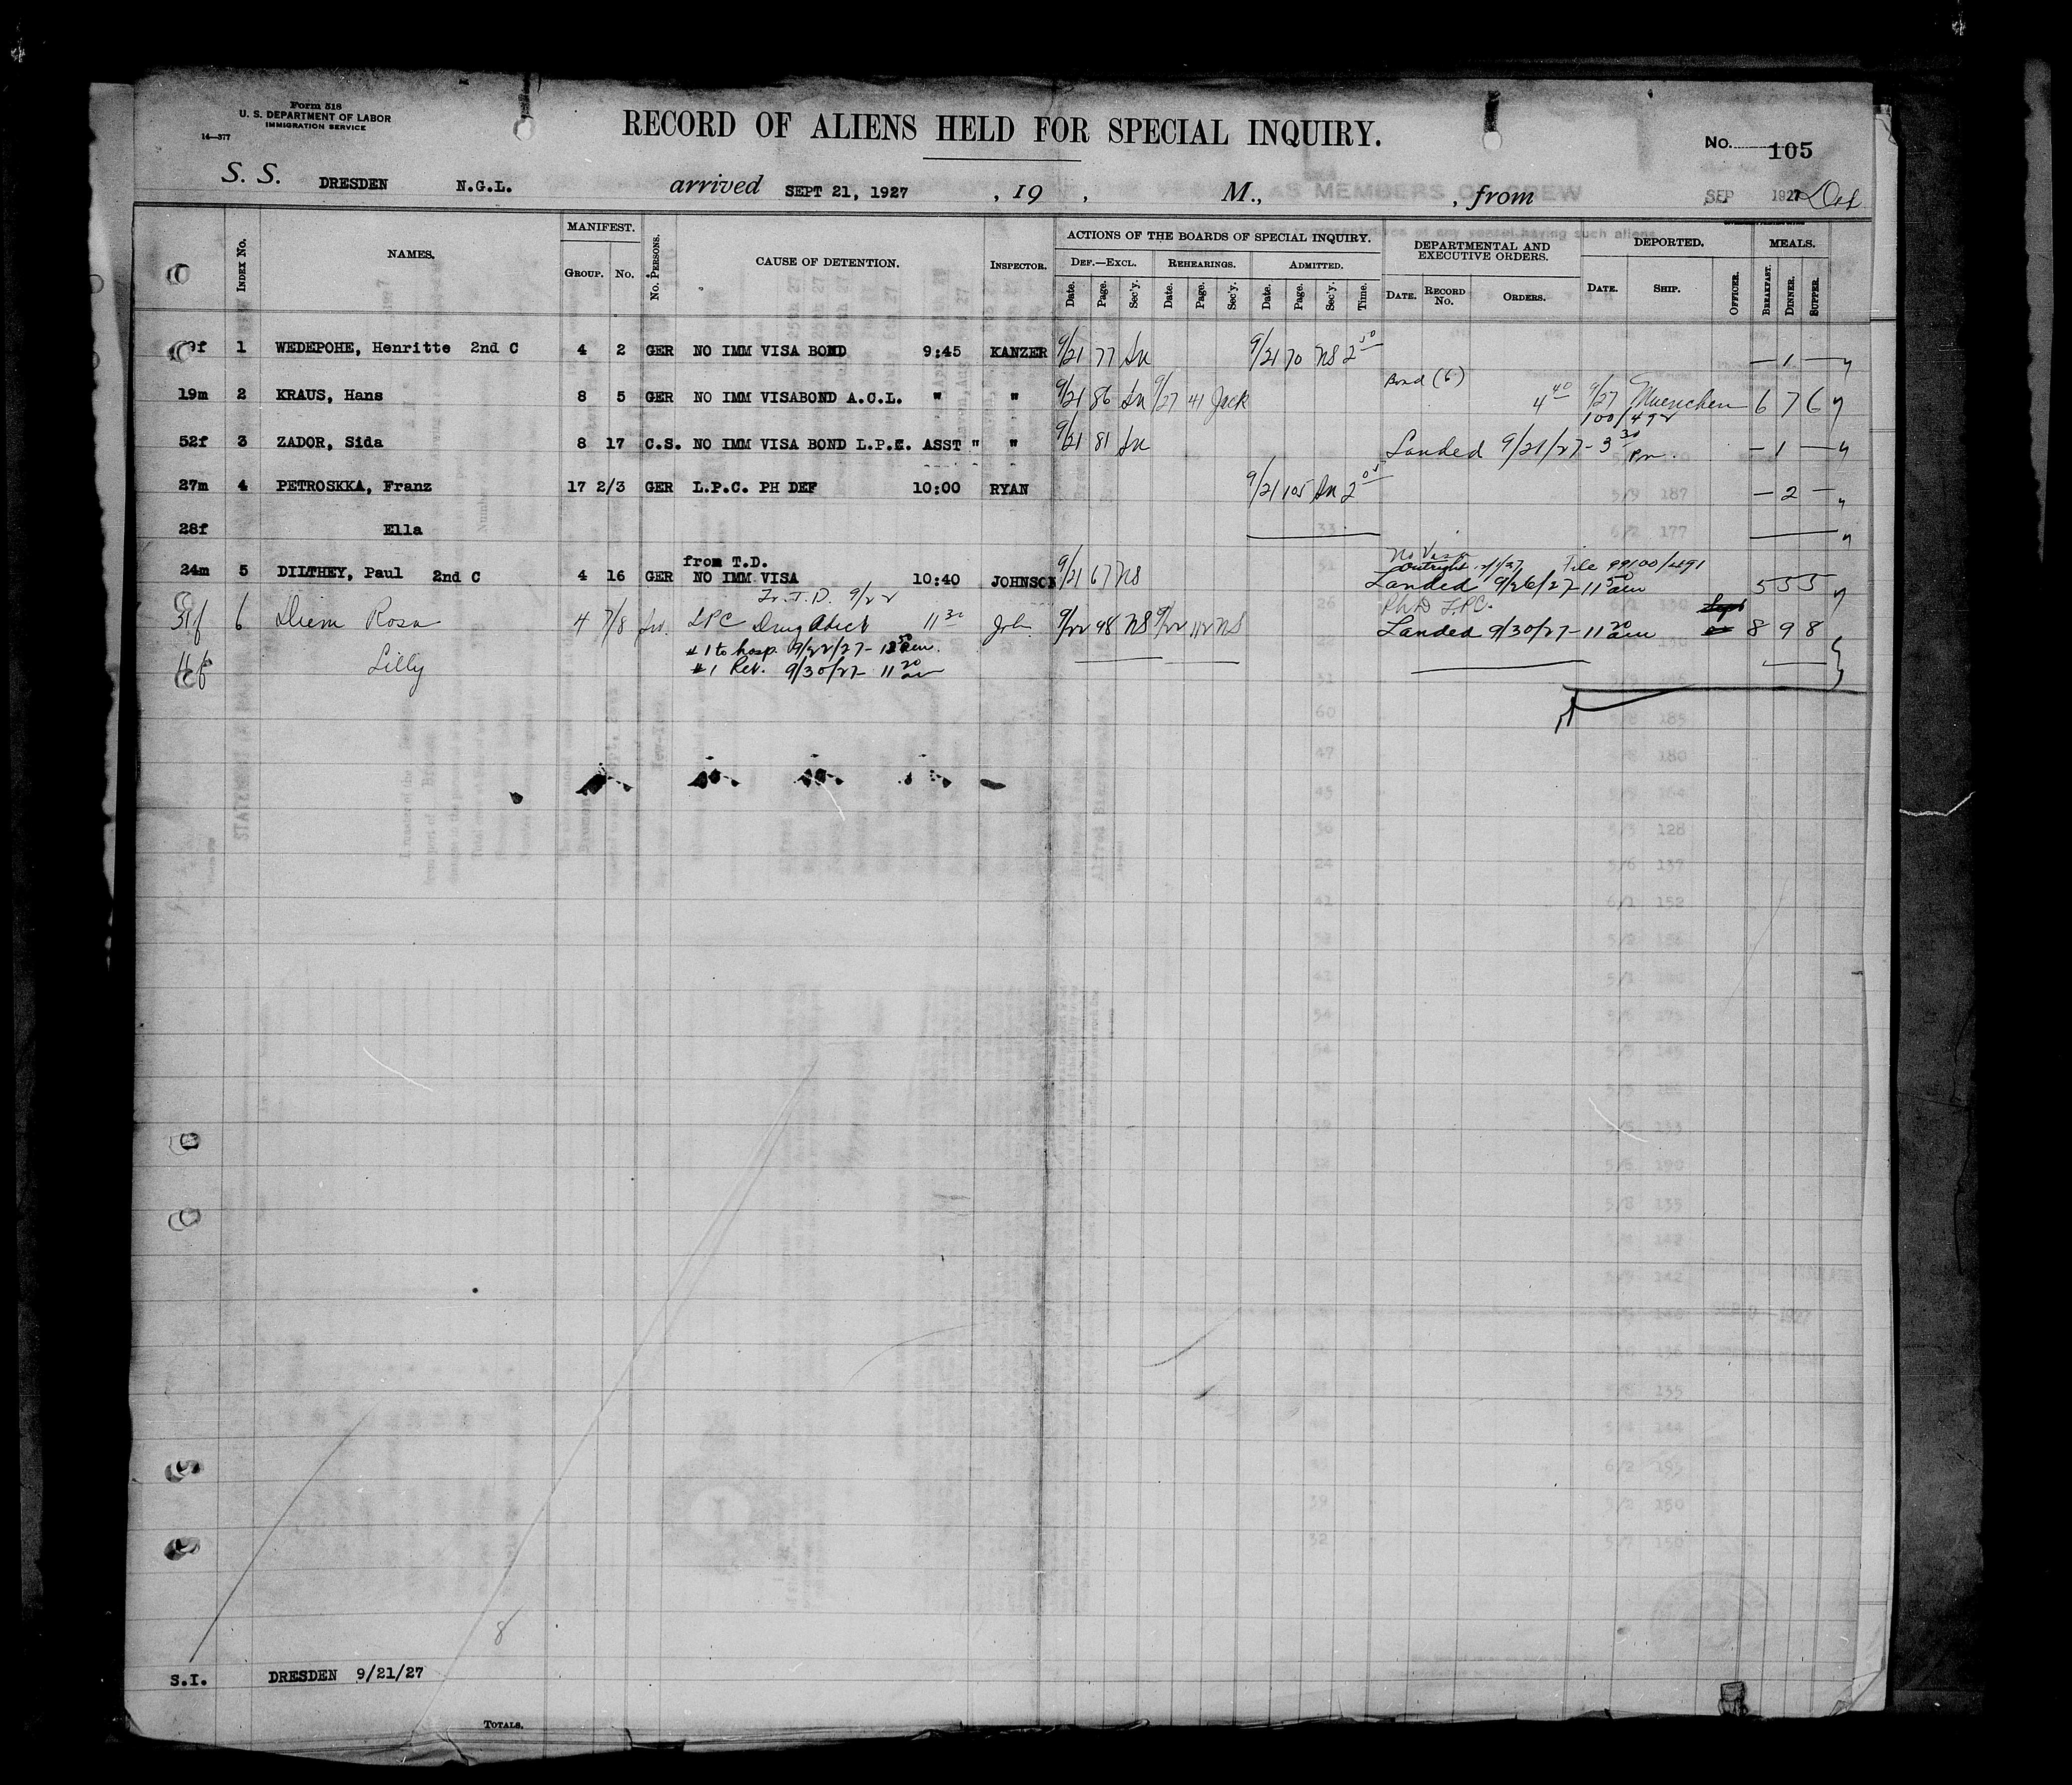 Form 518
U. S. DEPARTMENT OF LABOR
IMMIGRATION SERVICE
14—377
RECORD OF ALIENS HELD FOR SPECIAL INQUIRY.
No. 105
S. S. DRESDEN N.G.L. arrived SEPT 21, 1927 , 19 , M., , from SEP 1927
INDEX NO. NAMES. MANIFEST. GROUP. NO. NO. PERSONS. CAUSE OF DETENTION. INSPECTOR.
ACTIONS OF THE BOARDS OF SPECIAL INQUIRY. DEF.—EXCL. REHEARINGS. ADMITTED.
Date. Page. Sec'y. Date. Page. Sec'y. Date. Page. Sec'y. Time.
DEPARTMENTAL AND EXECUTIVE ORDERS. DATE. RECORD NO. ORDERS.
DEPORTED. DATE. SHIP. OFFICER.
MEALS. BREAKFAST. DINNER. SUPPER.
f 1 WEDEPOHE, Henritte 2nd C 4 2 GER NO IMM VISA BOND 9:45 KANZER 9/21 77 9/21 70 NS 2 50 — 1 —
Bond (6)
19m 2 KRAUS, Hans 8 5 GER NO IMM VISABOND A.C.L. " " 9/21 86 9/27 41 Jack 4 40 9/27 Muenchen 6 7 6
52f 3 ZADOR, Sida 8 17 C.S. NO IMM VISA BOND L.P.C. ASST " " 9/21 81 Landed 9/21/27 - 3 30 Pm. — 1 —
27m 4 PETROSKKA, Franz 17 2/3 GER L.P.C. PH DEF 10:00 RYAN 9/21 105 2 05 — 2 —
28f Ella
from T.D. No Visa
24m 5 DILTHEY, Paul 2nd C 4 16 GER NO IMM VISA 10:40 JOHNSON 9/21 67 NS outright File 99100/491
Landed 9/26/27 - 11 50 am 5 5 5
Fr. T.D. 9/22
31f 6 Diem Rosa 4 7/8 LPC Drug Adict 11 30 Joh 9/22 98 NS 9/22 112 NS Landed 9/30/27 - 11 20 am 8 9 8
#1 to hosp. 9/22/27 -
11f Lilly #1 Ret. 9/30/27 - 11 20 am
8
S.I. DRESDEN 9/21/27
TOTALS.